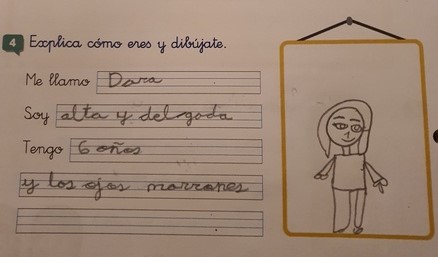 4 Explica cómo eres y dibújate.
Me llamo Dara
Soy alta y delgada
Tengo 6 años
y los ojos marrones